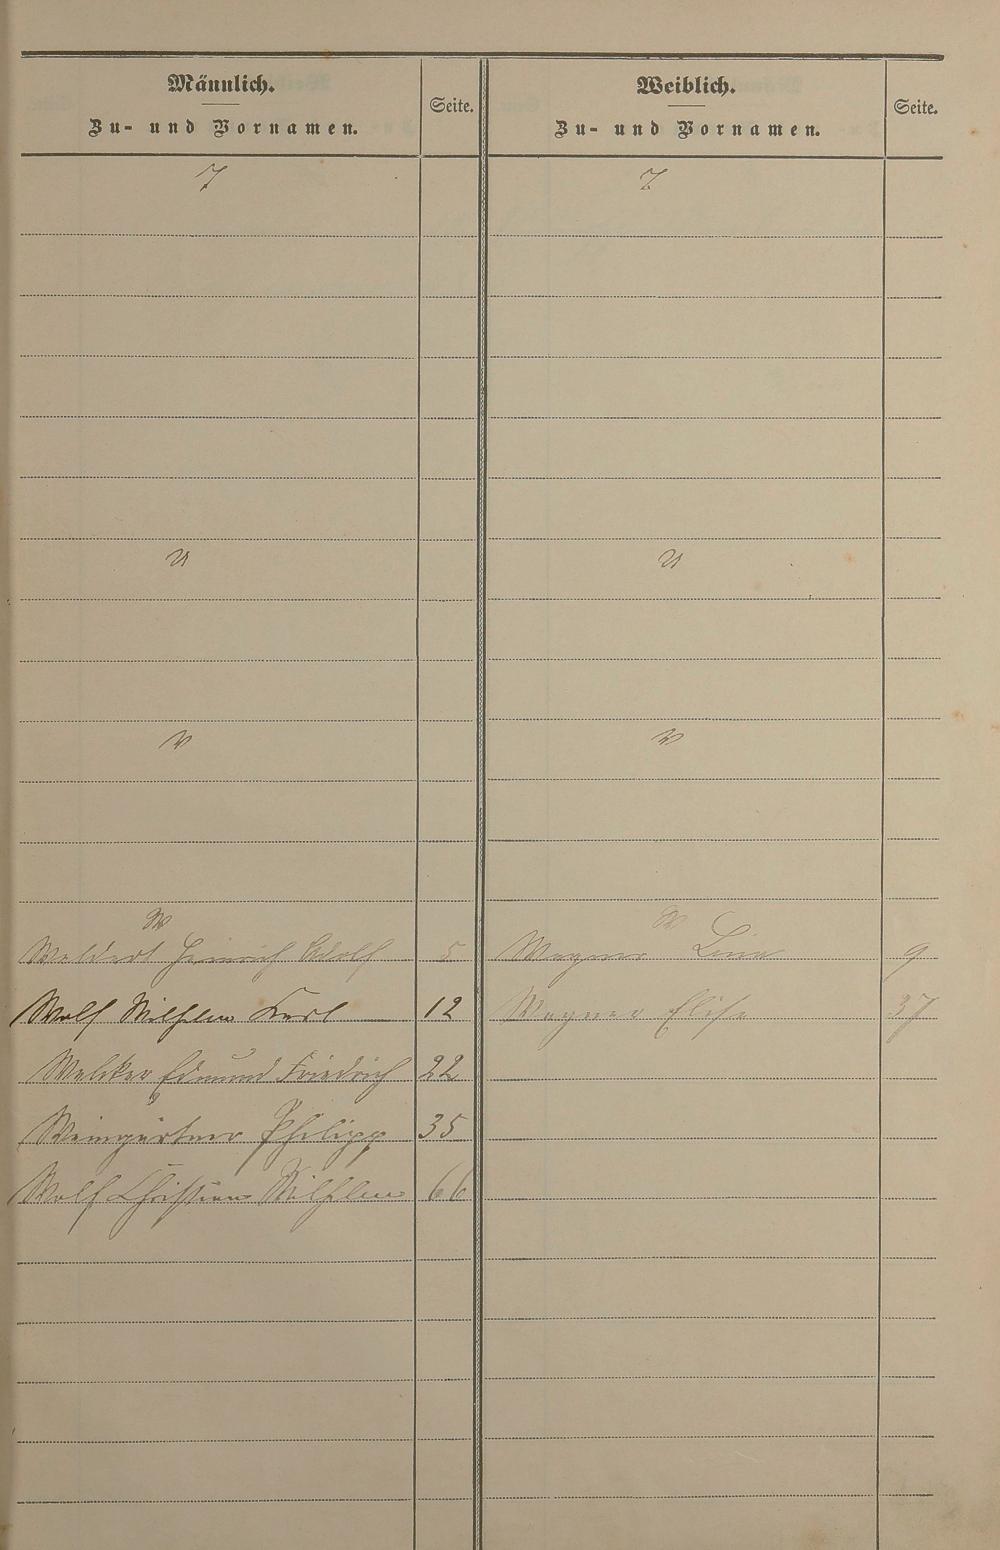 Männlich.
Zu- und Vornamen.
Seite.
Weiblich.
Zu- und Vornamen.
Seite.
T
T
U
U
V
V
W
W
Heinrich Adolf 5
Wagner Lina 9
Wolf Wilhelm Karl 12
Wagner Elise 37
Welcker Edmund Friedrich 22
Weingärtner Philipp 35
Wolf Christian Wilhelm 66